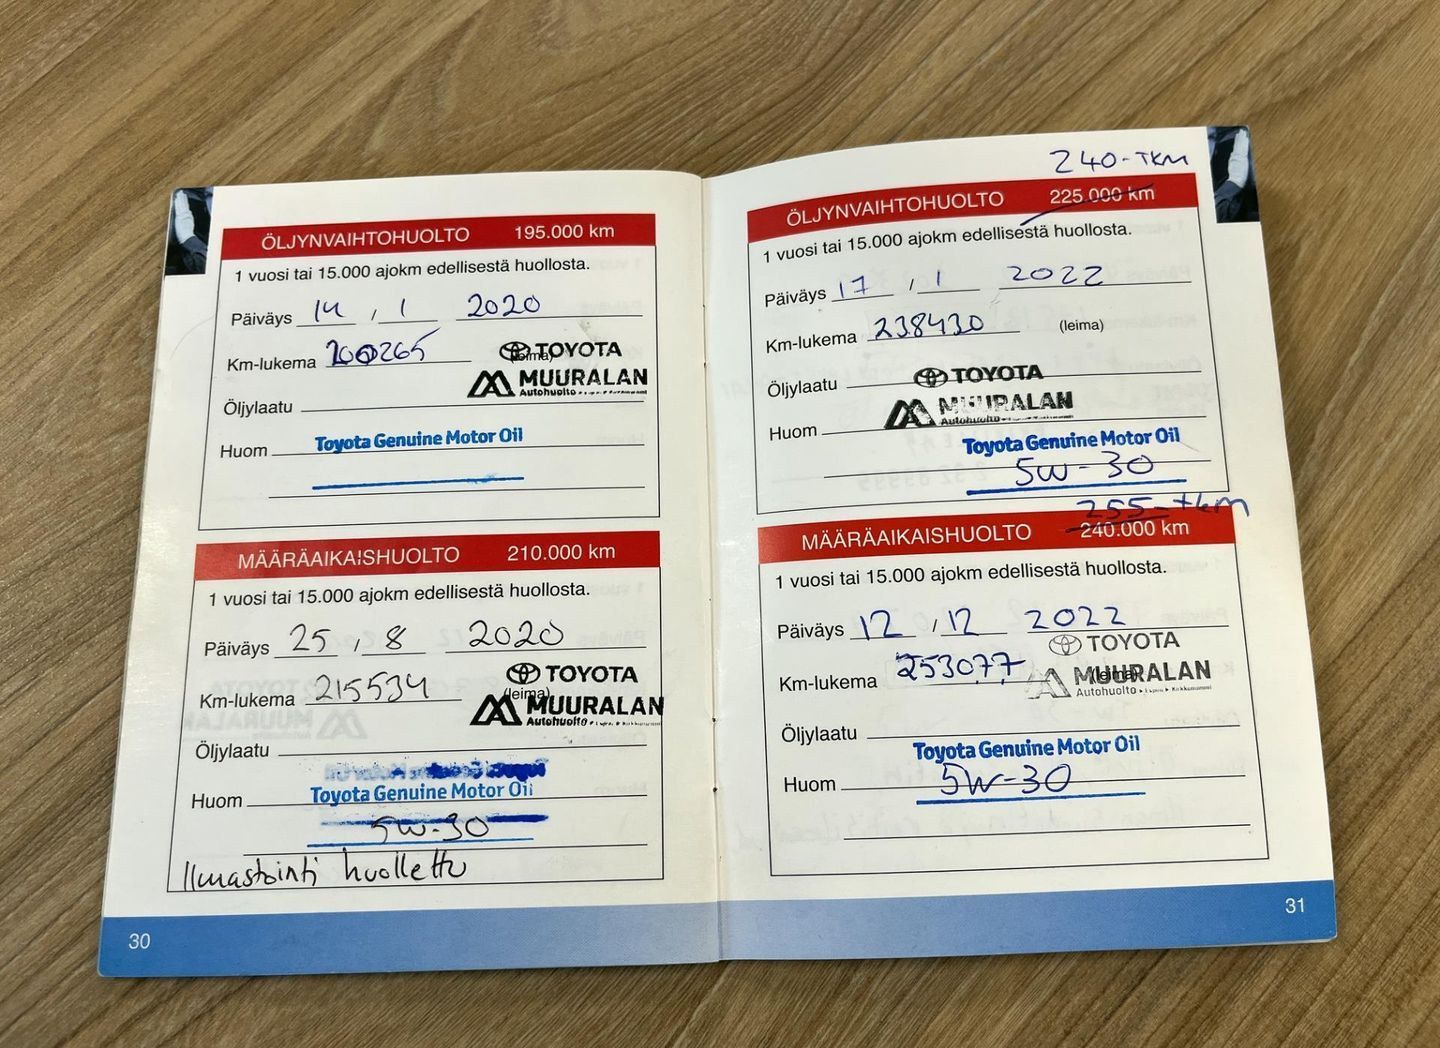 ÖLJYNVAIHTOHUOLTO 195.000 km
1 vuosi tai 15.000 ajokm edellisestä huollosta.
Päiväys 14 , 1 2020
Km-lukema 200265 (leima)
TOYOTA
MUURALAN
Autohuolto
Öljylaatu
Huom Toyota Genuine Motor Oil
MÄÄRÄAIKAISHUOLTO 210.000 km
1 vuosi tai 15.000 ajokm edellisestä huollosta.
Päiväys 25 , 8 2020
Km-lukema 215534 (leima)
TOYOTA
MUURALAN
Autohuolto
Öljylaatu
Huom Toyota Genuine Motor Oil
5W-30
Ilmastointi huollettu
30
240-TKM
ÖLJYNVAIHTOHUOLTO 225.000 km
1 vuosi tai 15.000 ajokm edellisestä huollosta.
Päiväys 17 , 1 2022
Km-lukema 238430 (leima)
Öljylaatu
TOYOTA
MUURALAN
Autohuolto
Huom
Toyota Genuine Motor Oil
5W-30
255-tkm
MÄÄRÄAIKAISHUOLTO 240.000 km
1 vuosi tai 15.000 ajokm edellisestä huollosta.
Päiväys 12 , 12 2022
TOYOTA
Km-lukema 253077 (leima)
MUURALAN
Autohuolto
Öljylaatu
Toyota Genuine Motor Oil
Huom 5W-30
31